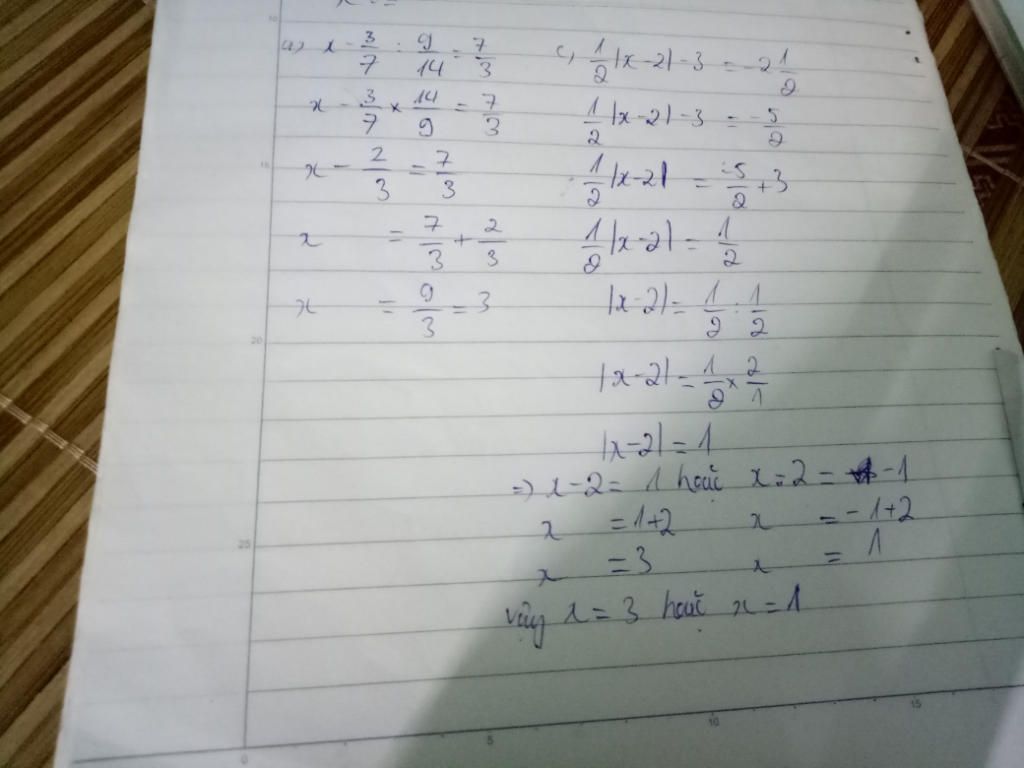 a) x - 3/7 : 9/14 = 7/3
x - 3/7 × 14/9 = 7/3
x - 2/3 = 7/3
x = 7/3 + 2/3
x = 9/3 = 3
c, 1/2 |x-2| - 3 = -2 1/2
1/2 |x-2| - 3 = -5/2
1/2 |x-2| = -5/2 + 3
1/2 |x-2| = 1/2
|x-2| = 1/2 : 1/2
|x-2| = 1/2 × 2/1
|x-2| = 1
=> x-2 = 1 hoặc x-2 = -1
x = 1+2 x = -1+2
x = 3 x = 1
vậy x = 3 hoặc x = 1
15
20
25
0 5 10 15